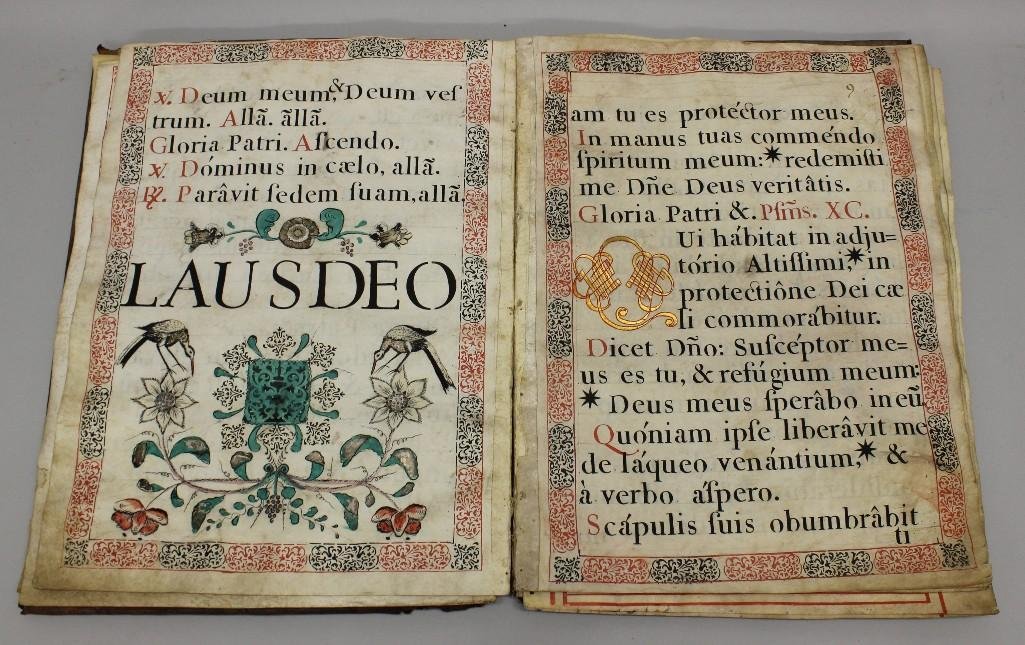 ℣. Deum meum, & Deum veſ
trum. Allã. ãllã.
Gloria Patri. Aſcendo.
℣. Dóminus in cælo, allã.
℟. Parâvit ſedem ſuam, allã.
LAUS DEO
9
am tu es protéctor meus.
In manus tuas comméndo
ſpiritum meum: * redemiſti
me Dñe Deus veritâtis.
Gloria Patri &. Pſm̃s. XC.
QUi hábitat in adju=
tório Altiſſimi, * in
protectiône Dei cæ
li commorábitur.
Dicet Dño: Suſcéptor me=
us es tu, & refúgium meum:
* Deus meus ſperâbo in eũ
Quóniam ipſe liberâvit me
de láqueo venántium, * &
à verbo áſpero.
Scápulis ſuis obumbrâbit
ti